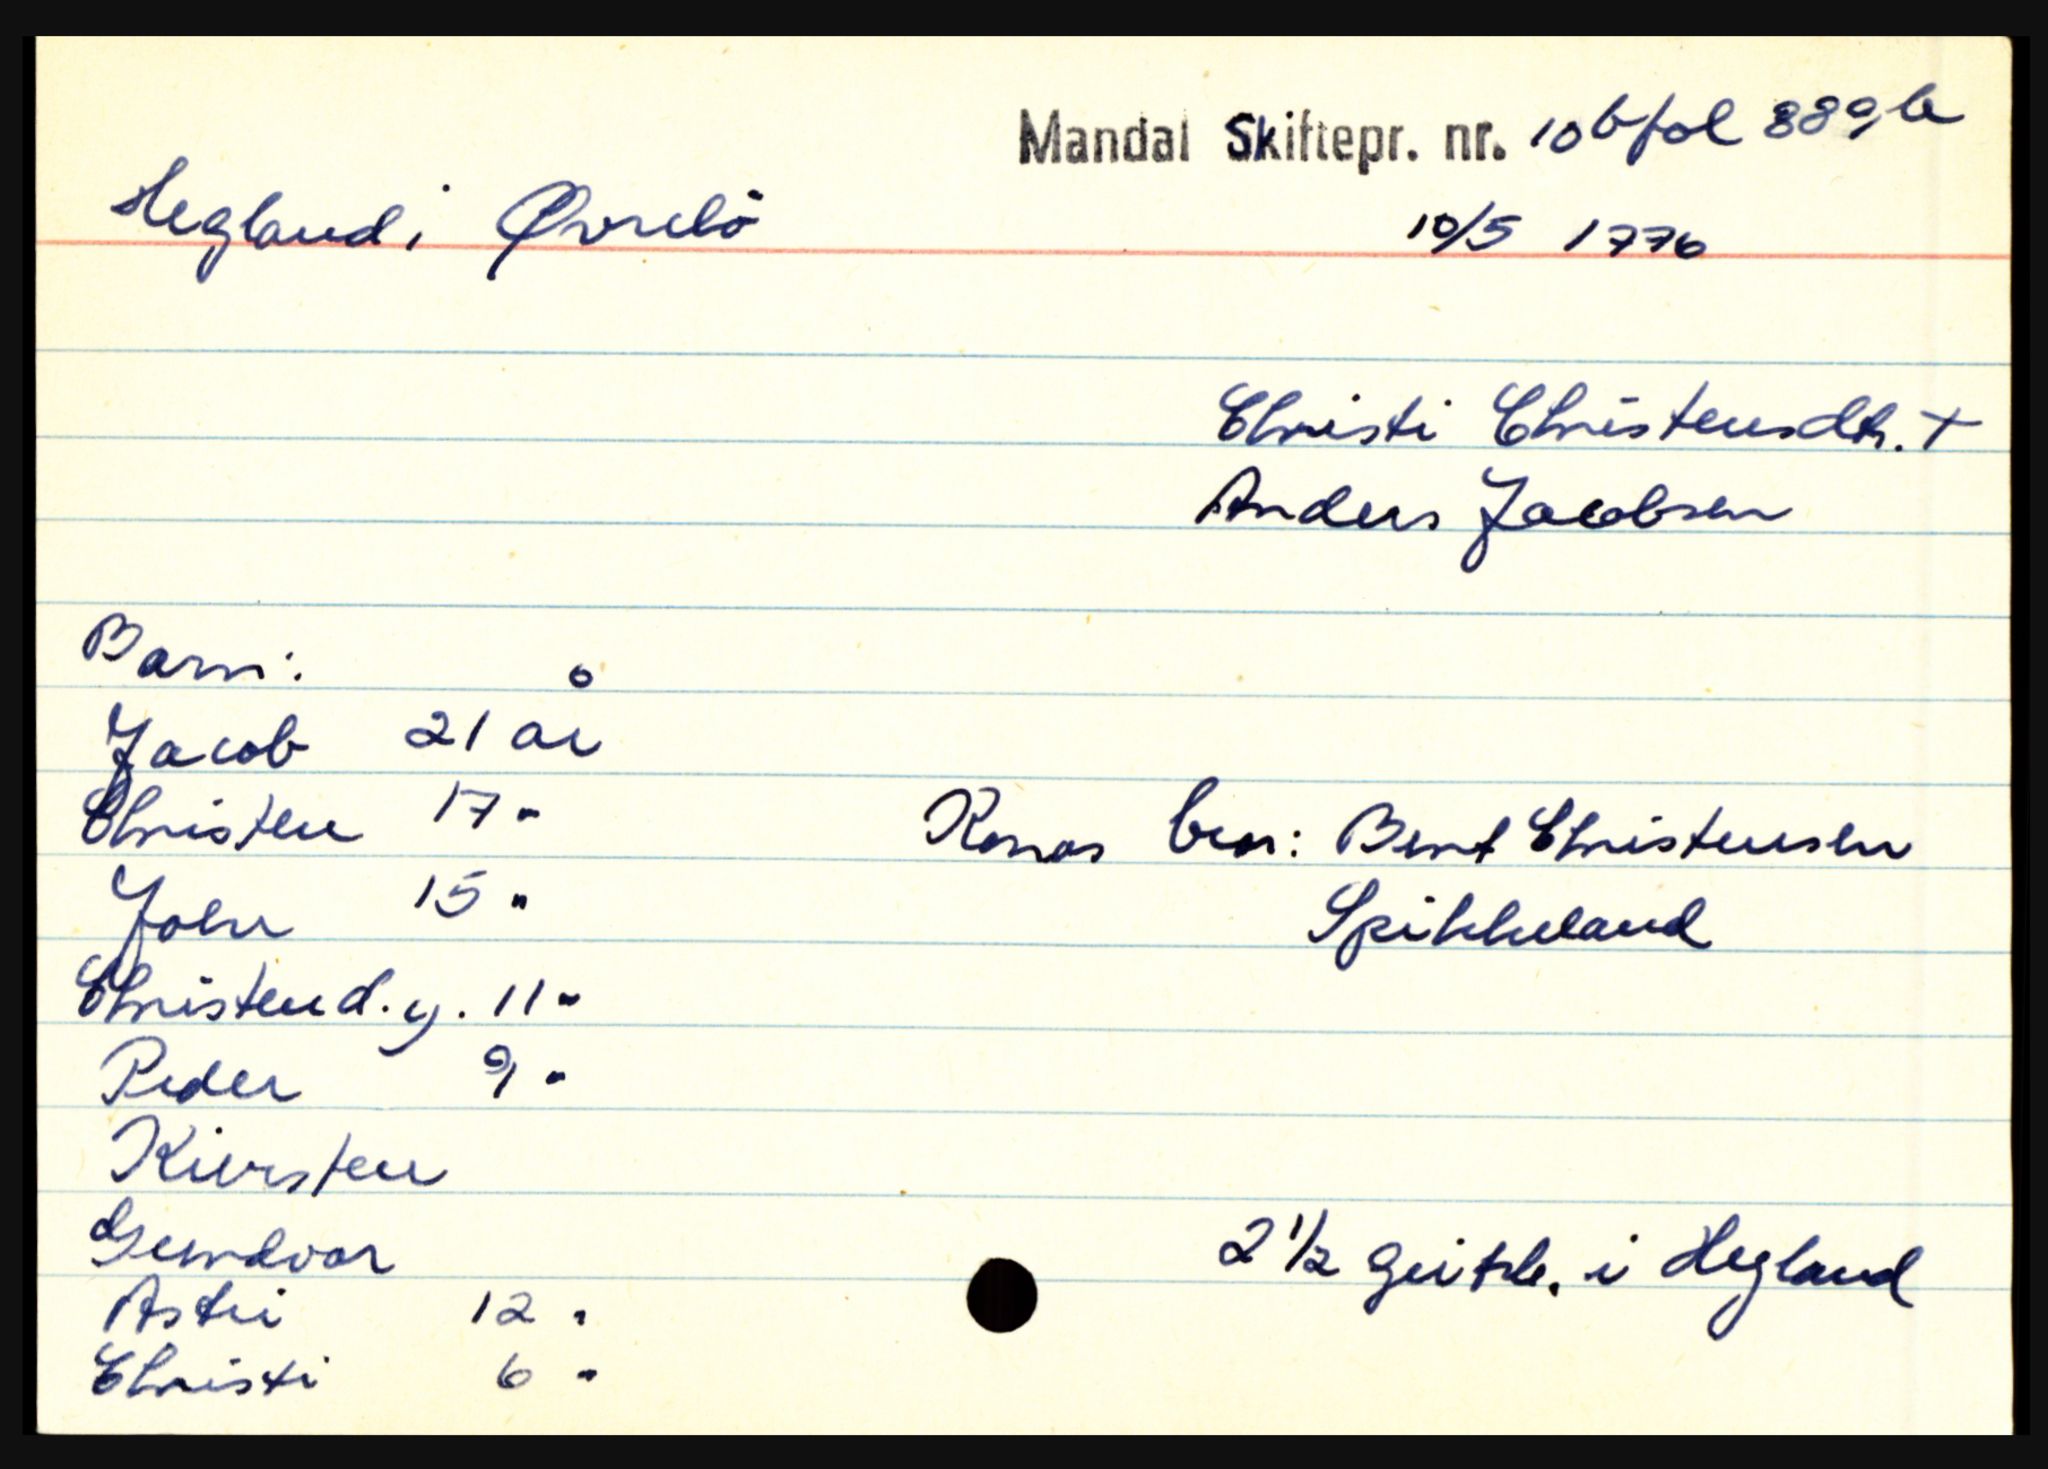 Mandal Skiftepr. nr. 10b fol 889b
Hegland i Øvrebö
10/5 1776
Christi Christensdtr. +
Anders Jacobsen
Barn:
Jacob 21 år
Christen 17 "
John 15 "
Christen d.y. 11 "
Peder 9 "
Kiersten
Gundvor
Astri 12 "
Christi 6 "
Konas bror: Bent Christensen
Spikkeland
2 1/2 geitsk. i Hegland